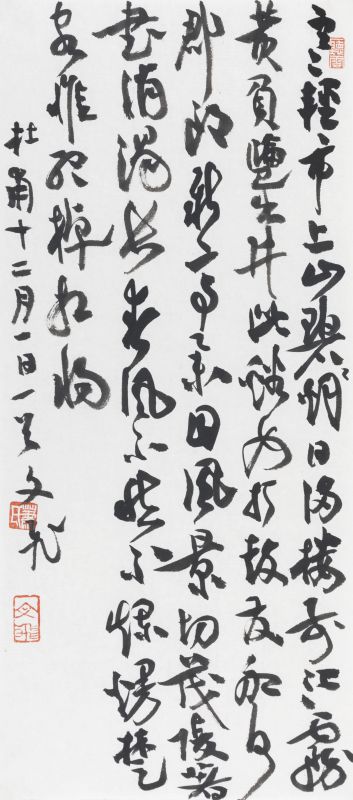 寒輕市上山碧烟日滿樓前江霧
黄負鹽出井此谿女打鼓發船何
郡郎新亭舉目風景切茂陵著
書消渴長春風不愁不爛熳楚
客惟聽棹相將
杜甫十二月一日一首文飛